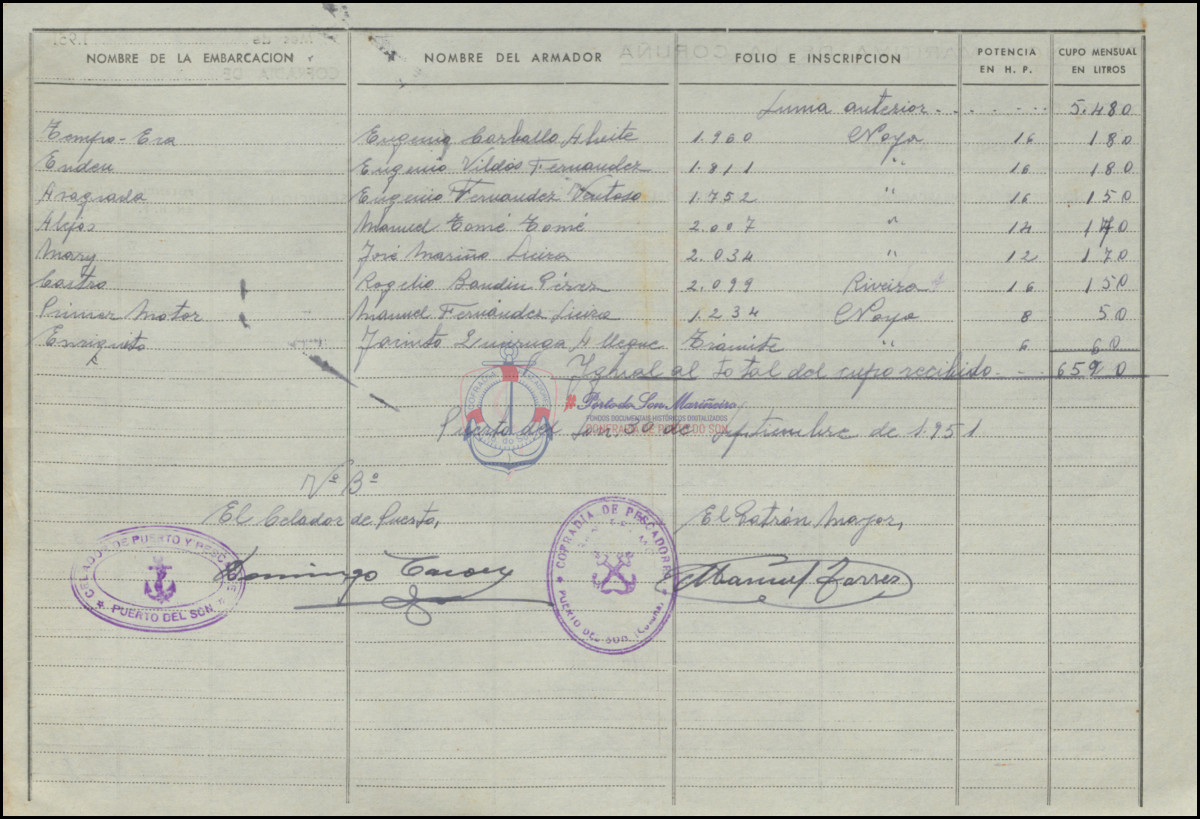 NOMBRE DE LA EMBARCACION NOMBRE DEL ARMADOR FOLIO E INSCRIPCION POTENCIA EN H. P. CUPO MENSUAL EN LITROS
Suma anterior - - - - - - 5.480
Tempo-Era Eugenio Carballo Alveite 1.960 Noya 16 180
Enden Eugenio Vildós Fernandez 1.811 " 16 180
Eugenio Fernandez Ventoso 1.752 " 16 150
Manuel Tomé Tomé 2.007 " 14 170
Mary José Mariño 2.034 " 12 170
Castro Rogelio Baudin Pérez 2.099 Riveira 16 150
Primer Motor Manuel Fernández 1.234 Noya 8 50
Enriqueta Trámite " 6 60
Ygual al total del cupo recibido - - - 6590
Puerto del Son, 30 de septiembre de 1.951
Vº Bº
El Celador de Puerto, El Patrón Mayor,
Domingo Manuel Torres
CELADOR DE PUERTO Y PESCA
PUERTO DEL SON
COFRADIA DE PESCADORES
PUERTO DEL SON (Coruña)
Porto do Son Mariñeiro
FONDOS DOCUMENTAIS HISTÓRICOS DIXITALIZADOS
CONFRARÍA DE PORTO DO SON